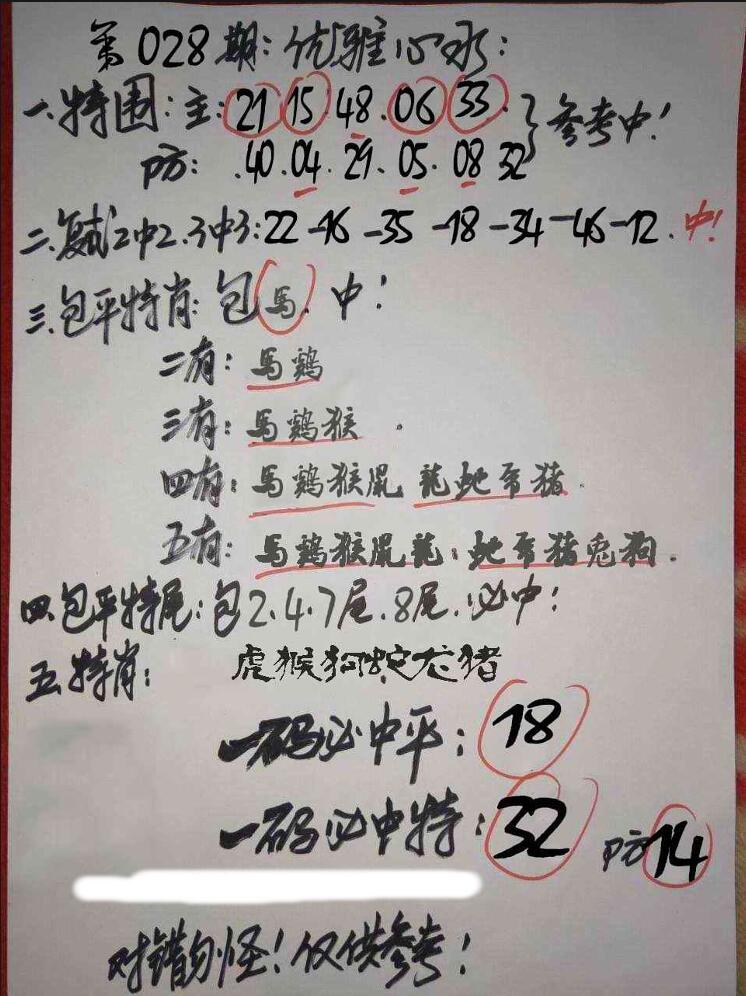 第028期:优雅心水:
一.特围:主:21 15.48.06 33.
防:.40.04.29.05.08 32 参考中!
二.复试2中2.3中3:22-16-35-18-34-46-12.中!
三.包平特肖:包馬.中!
二有:馬鷄
三有:馬鷄猴.
四有:馬鷄猴鼠 龍蛇帝猪.
五有:馬鷄猴鼠龍:蛇帝猪兔狗.
四.包平特尾:包2.4.7尾.8尾.必中!
五.特肖: 虎猴狗蛇龙猪
一码必中平:18
一码必中特:32 防14
对错勿怪!仅供参考!